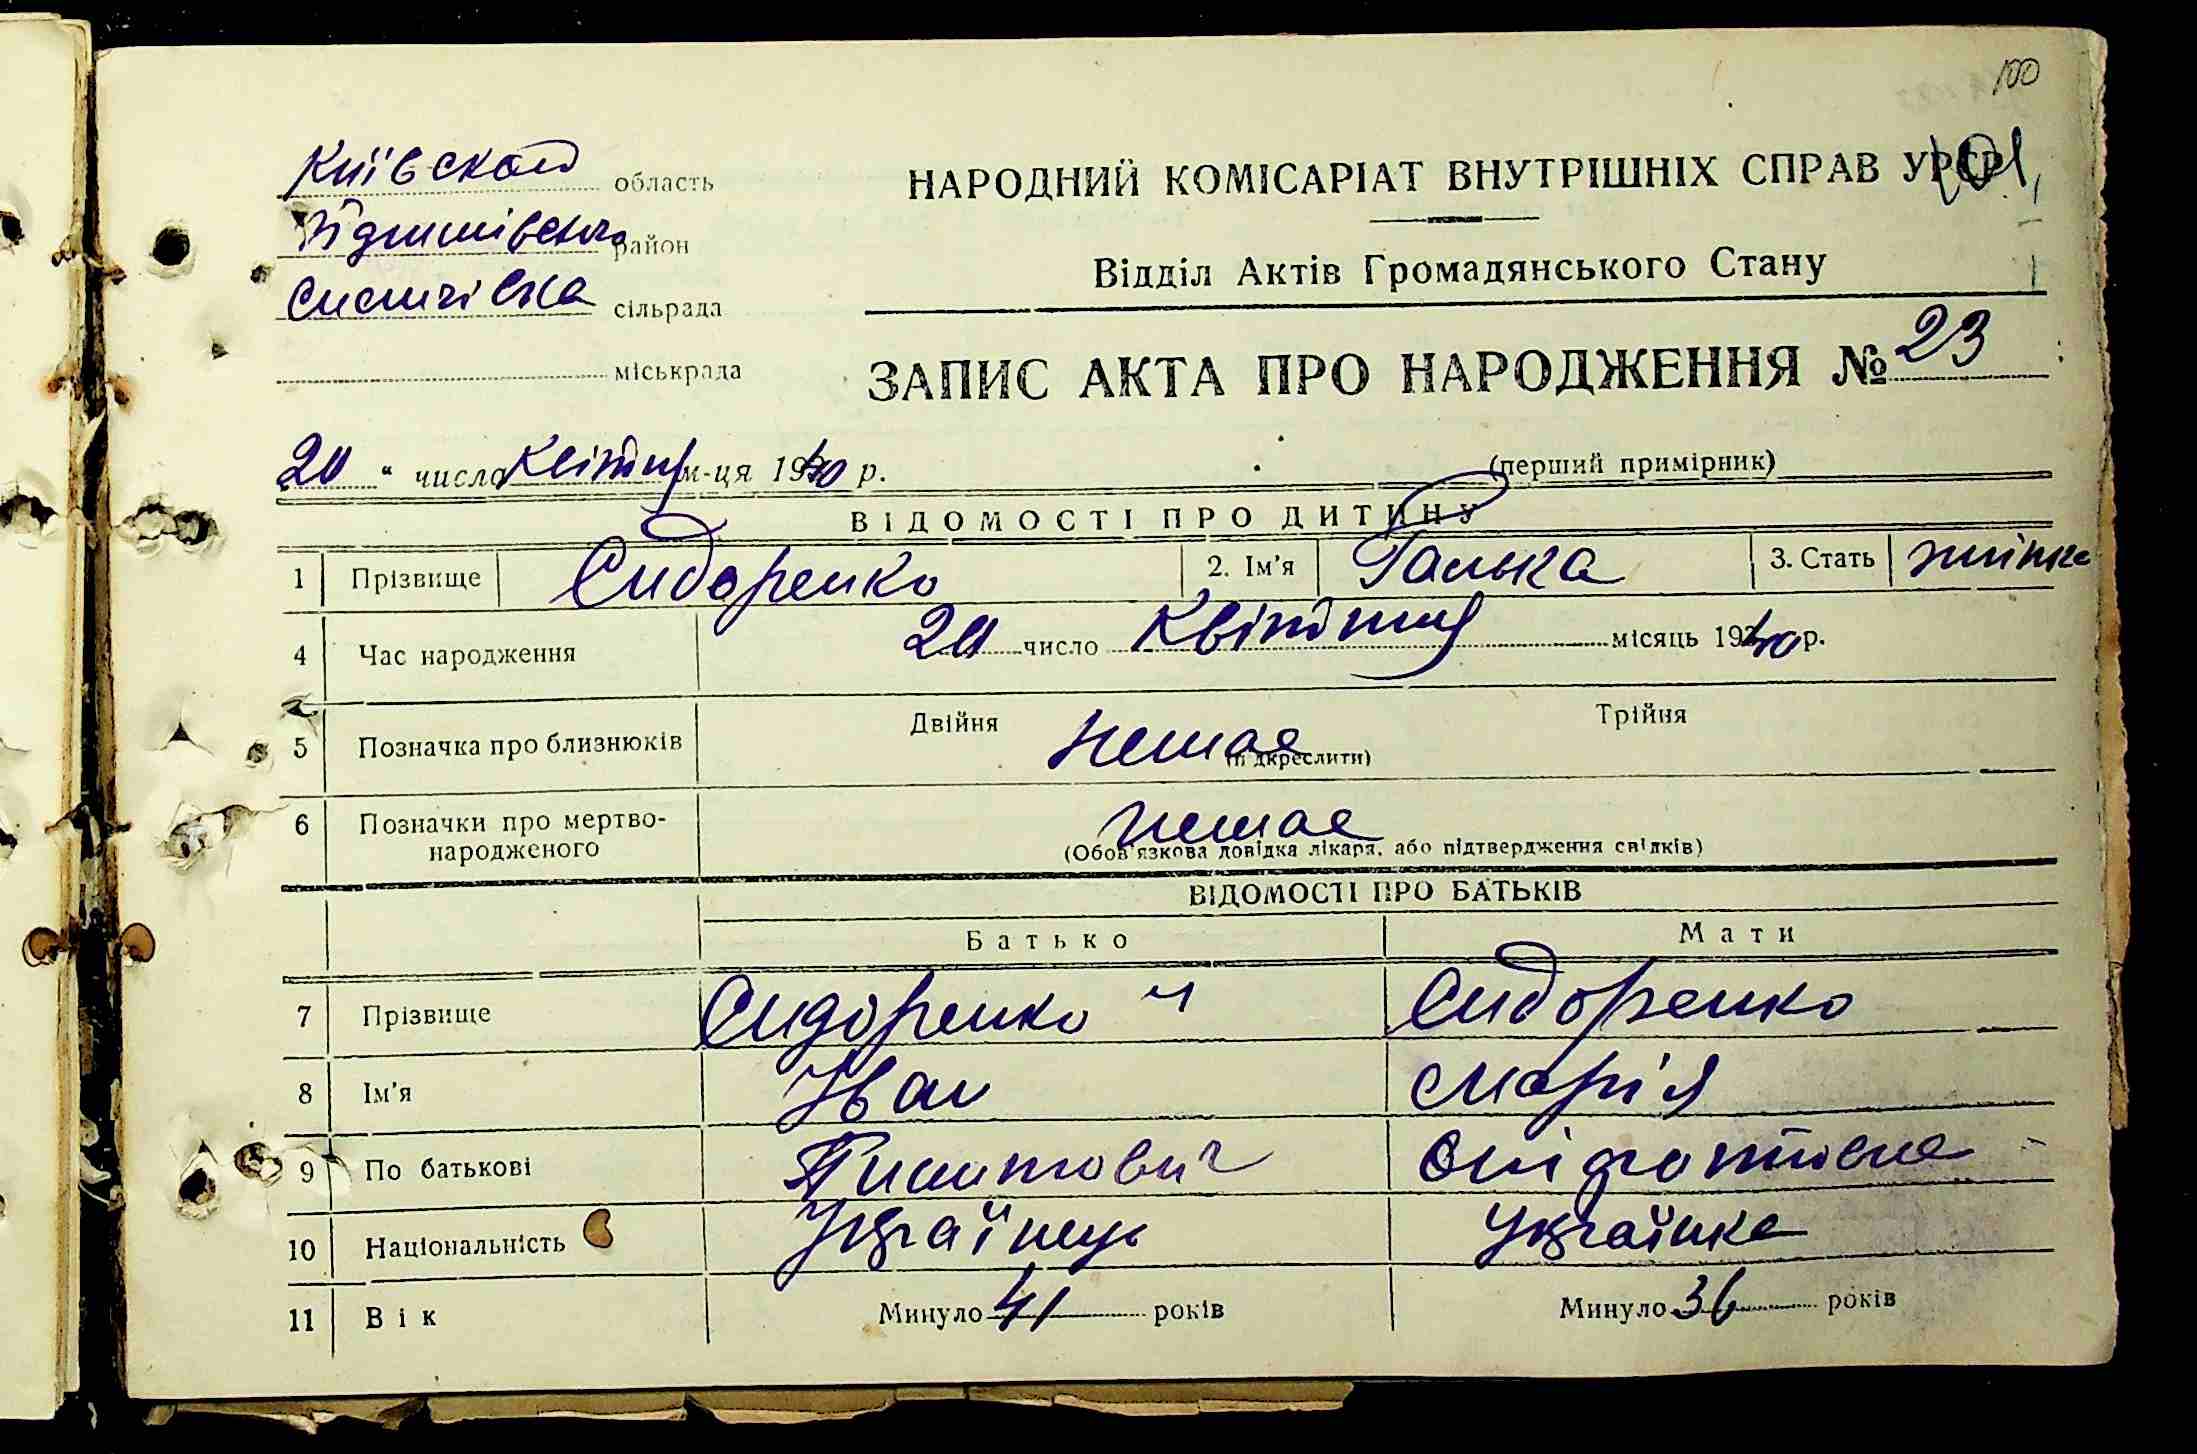 100
Київской область
НАРОДНИЙ КОМІСАРІАТ ВНУТРІШНІХ СПРАВ УРСР
101
район
Відділ Актів Громадянського Стану
сільрада
міськрада
ЗАПИС АКТА ПРО НАРОДЖЕННЯ № 23
20 " число Квітня м-ця 1940 р.
(перший примірник)
ВІДОМОСТІ ПРО ДИТИНУ
1 Прізвище Сидоренко 2. Ім'я Галька 3. Стать жінка
4 Час народження 20 число Квітня місяць 1940 р.
5 Позначка про близнюків Двійня немає Трійня
(підкреслити)
6 Позначки про мертво-
народженого немає
(Обов'язкова довідка лікаря, або підтвердження свідків)
ВІДОМОСТІ ПРО БАТЬКІВ
Батько Мати
7 Прізвище Сидоренко Сидоренко
8 Ім'я Іван Марія
9 По батькові
10 Національність Українець Українка
11 Вік Минуло 41 років Минуло 36 років